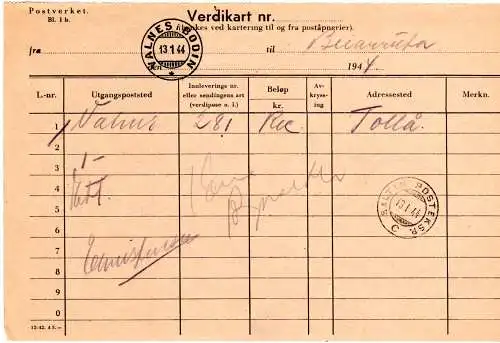 Postverket.
Bl. 1 b.
Verdikart nr.
(Brukes ved kartering til og fra poståpnerier).
VALNES BODIN
13 1 44
fra til Beiarruta
den 1944.
L.-nr. Utgangspoststed Innleverings nr. eller sendingens art (verdipose o. l.) Beløp kr. Av-kryss-ing Adressested Merkn.
1 Valnes 281 Rec Tollå.
2
3 1-
4
5
SALTEN POSTEKSP. C
13 1 44
6
7
8
9
0
12-42. 4 S.—